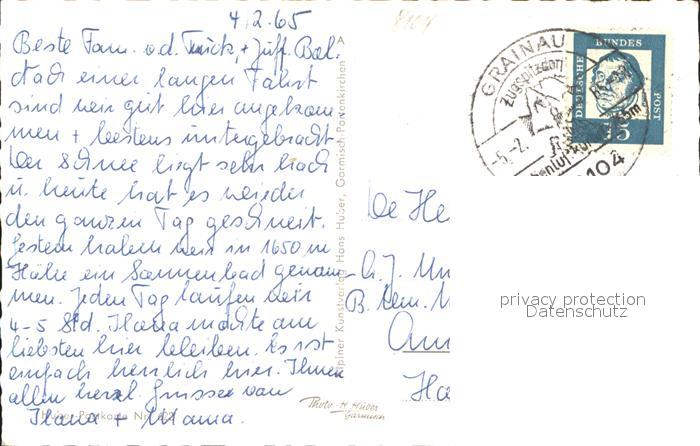 4/2.65
8104
Beste Fam. v.d. + Jiff. Bal.
Nach einer langen Fahrt
sind wir gut hier angekom
men + bestens untergebracht.
Der Schnee liegt sehr hoch
u. heute hat es wieder
den ganzen Tag geschneit.
Gestern haben wir in 1650 m
Höhe ein Sonnenbad genom-
men. Jeden Tag laufen wir
4-5 Std. Ilana möchte am
liebsten hier bleiben. Es ist
einfach herrlich hier. Ihnen
allen herzl. Grüsse von
Ilana + Mama.
Huber-Postkarte Nr.
Photo-H. Huber
Garmisch
Alpiner Kunstverlag Hans Huber, Garmisch-Partenkirchen A
GRAINAU
Zugspitzdorf
-5.-2.
8104
DEUTSCHE
BUNDES
POST
15
De He
A.J.
B.
Am
Ha
privacy protection
Datenschutz